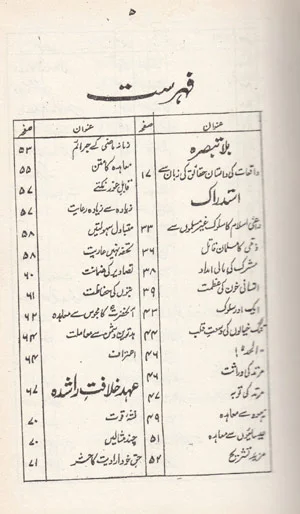 ۵
فہرست
عنوان صفحہ
بلا تبصرہ
واقعات کی داستان حقائق کی زبان سے ۱۷
استدراک
داعی اسلام کا سلوک غیر مسلموں سے ۳۳
ذمی کا مسلمان قاتل ۳۶
مشرک کی مالی امداد ۳۸
انسانی خون کی عظمت ۳۹
ایک اور سلوک ۴۳
تنگ خیالوں کی وسعت قلب ۴۴
الحمد للہ! ۴۶
مرتد کی وراثت ۴۶
مرتد کی توبہ ۴۷
یہود سے معاہدہ ۴۹
عیسائیوں سے معاہدہ ۵۱
مزید تشریح ۵۲
عنوان صفحہ
زمانہ ماضی کے جرائم ۵۳
معاہدہ کا متن ۵۵
قابل غور نکتے ۵۷
زیادہ سے زیادہ رعایت ۵۷
مقبادل سہولتیں ۵۸
تحفہ نہیں عاریت ۵۸
تصاویر کی ضمانت ۶۰
بتوں کی حفاظت ۶۱
آنحضرت کا مجوس سے معاہدہ ۶۲
بدترین دشمن سے معاملت ۶۴
اعتراف ۶۴
عہد خلافت راشدہ ۶۷
نشۂ قوت ۷۰
چند مثالیں ۷۰
حق خود ارادیت کا حشر ۷۱